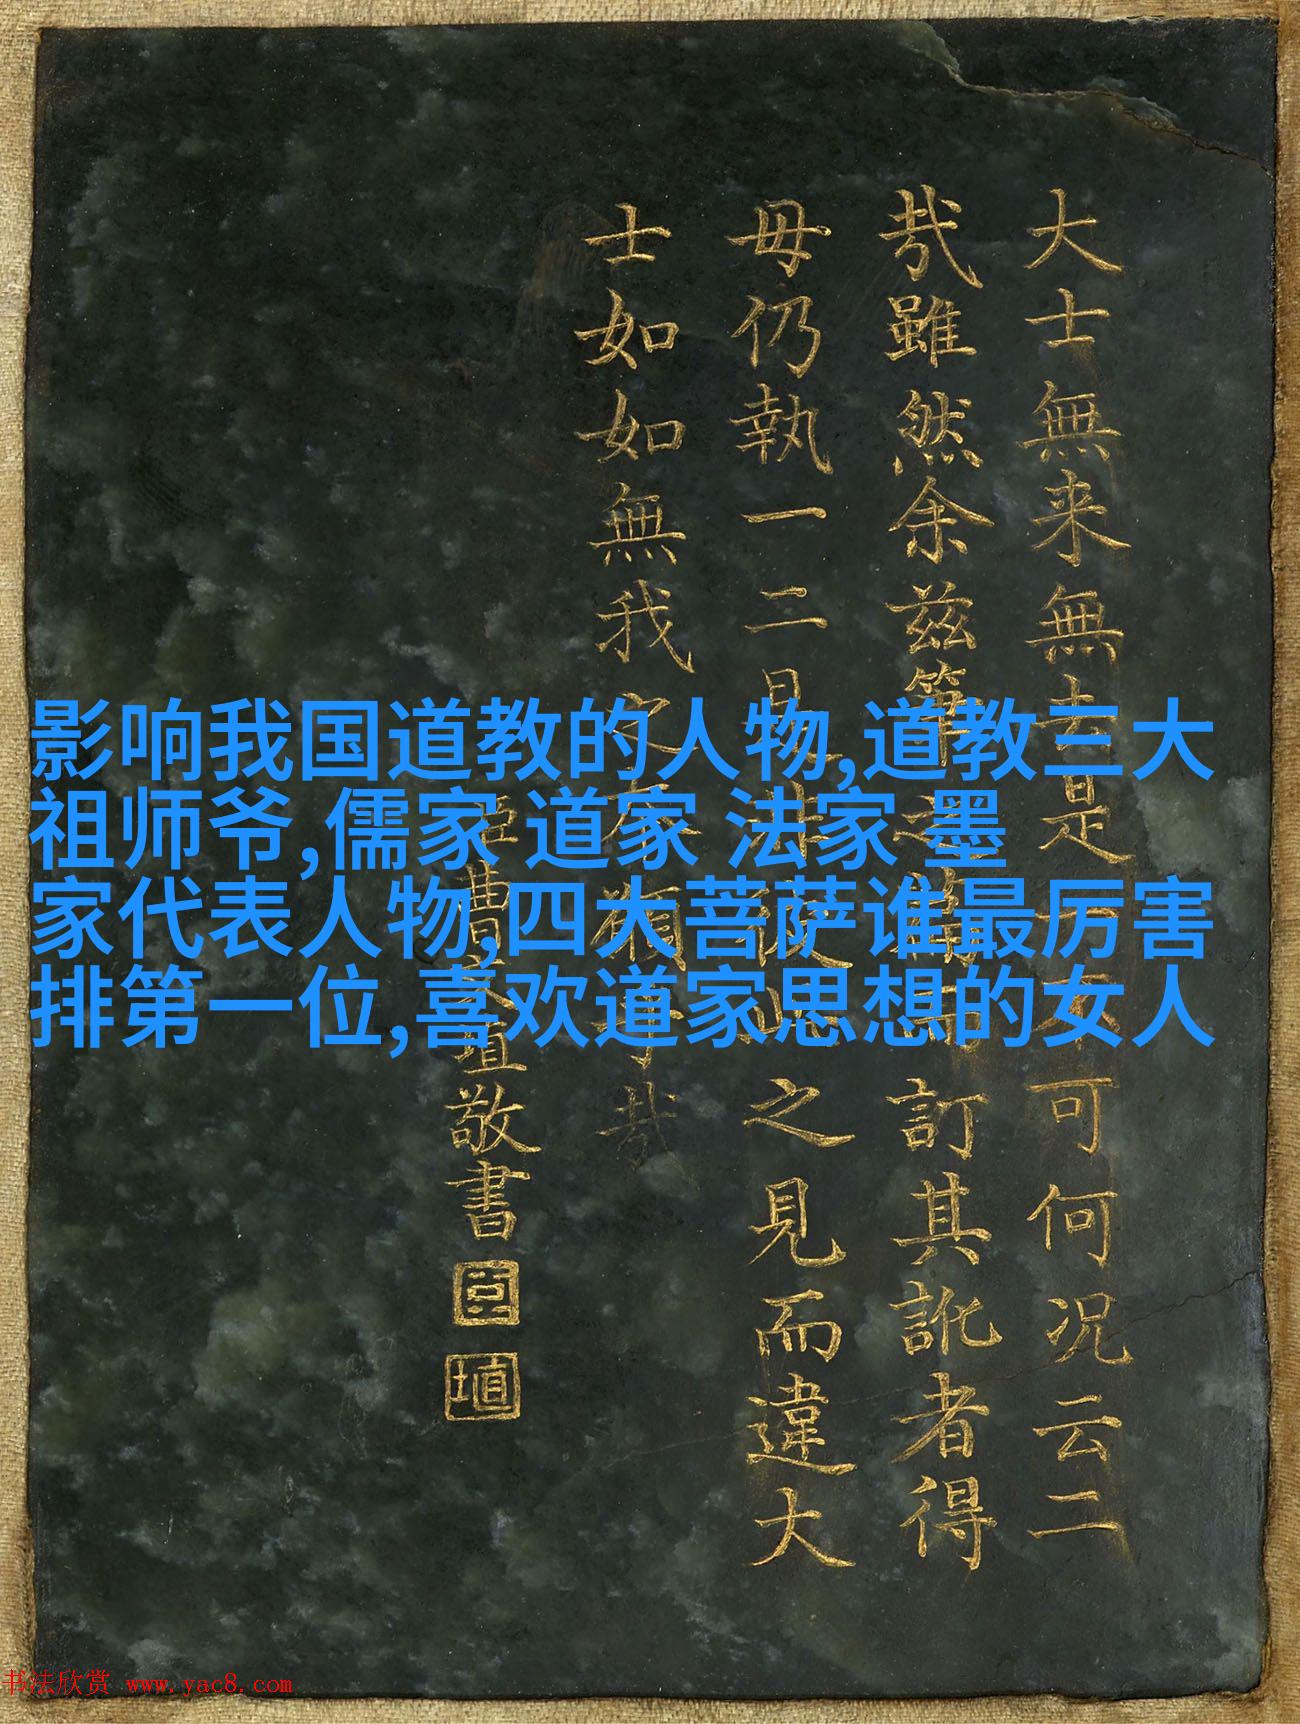 影响我国道教的人物,道教三大
祖师爷,儒家 道家 法家 墨
家代表人物,四大菩萨谁最厉害
排第一位,喜欢道家思想的女人
大士無来無去是可何况云二
哉雖然余兹筆之訂其訛者得
毋仍執一二是非彼此之見而違大
士如如無我之本願乎哉
臣曹文埴敬書
臣
埴
书法欣赏 www.yac8.com